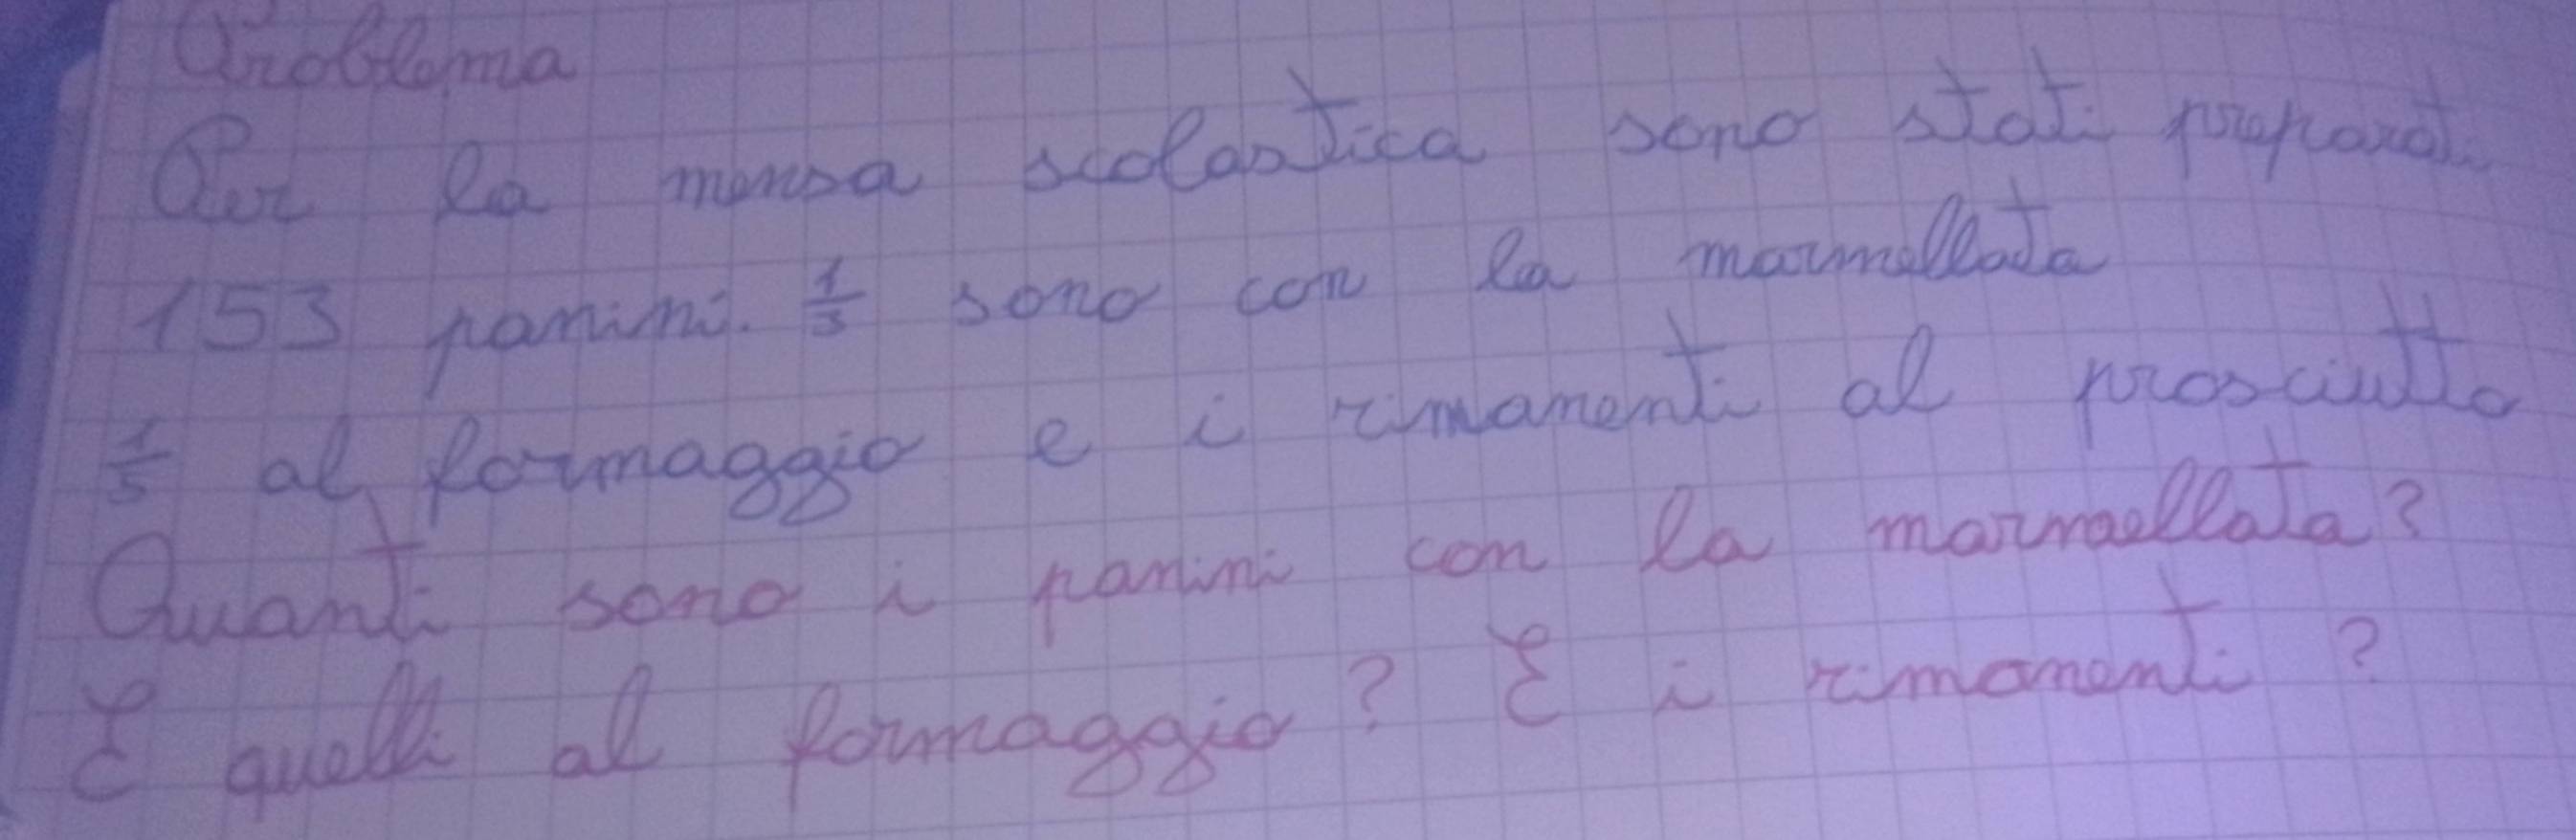 Problema
Per la mensa scolastica sono stati preparati
153 panini. 1/3 sono con la marmellata
1/5 al formaggio e i rimanenti al prosciutto
Quanti sono i panini con la marmaellata?
E quelli al formaggio? E i rimanenti?